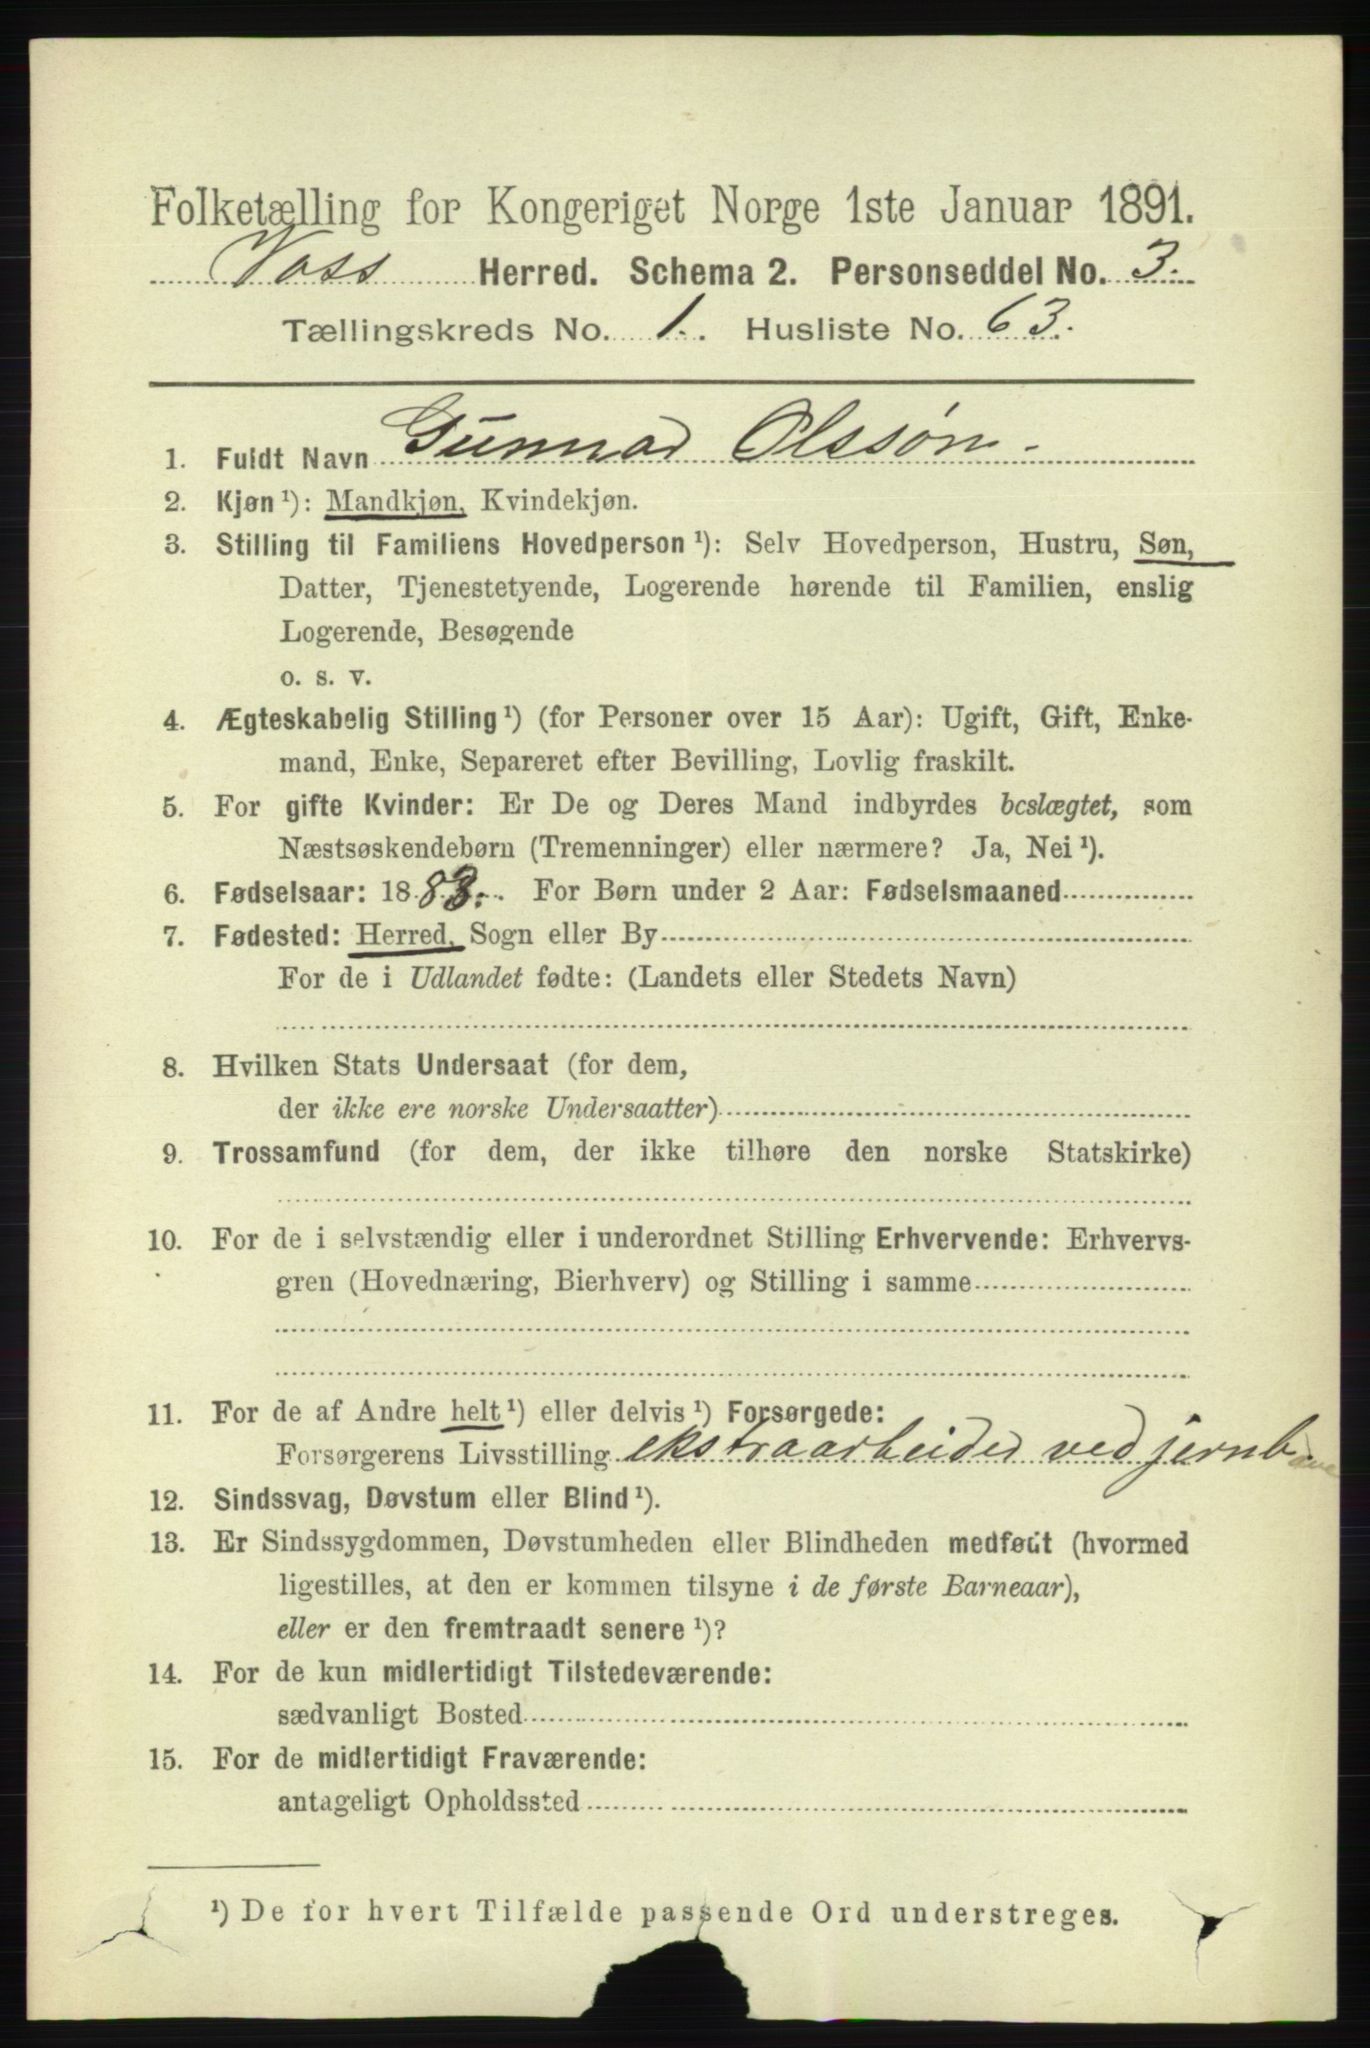 Folketælling for Kongeriget Norge 1ste Januar 1891.
Voss Herred. Schema 2. Personseddel No. 3.
Tællingskreds No. 1. Husliste No. 63.
1. Fuldt Navn Gunnar Olssøn.
2. Kjøn ¹): Mandkjøn, Kvindekjøn.
3. Stilling til Familiens Hovedperson ¹): Selv Hovedperson, Hustru, Søn,
Datter, Tjenestetyende, Logerende hørende til Familien, enslig
Logerende, Besøgende
o. s. v.
4. Ægteskabelig Stilling ¹) (for Personer over 15 Aar): Ugift, Gift, Enke-
mand, Enke, Separeret efter Bevilling, Lovlig fraskilt.
5. For gifte Kvinder: Er De og Deres Mand indbyrdes beslægtet, som
Næstsøskendebørn (Tremenninger) eller nærmere? Ja, Nei ¹).
6. Fødselsaar: 1883. For Børn under 2 Aar: Fødselsmaaned
7. Fødested: Herred, Sogn eller By
For de i Udlandet fødte: (Landets eller Stedets Navn)
8. Hvilken Stats Undersaat (for dem,
der ikke ere norske Undersaatter)
9. Trossamfund (for dem, der ikke tilhøre den norske Statskirke)
10. For de i selvstændig eller i underordnet Stilling Erhvervende: Erhvervs-
gren (Hovednæring, Bierhverv) og Stilling i samme
11. For de af Andre helt ¹) eller delvis ¹) Forsørgede:
Forsørgerens Livsstilling ekstraarbeider ved jernbane
12. Sindssvag, Døvstum eller Blind ¹).
13. Er Sindssygdommen, Døvstumheden eller Blindheden medfødt (hvormed
ligestilles, at den er kommen tilsyne i de første Barneaar),
eller er den fremtraadt senere ¹)?
14. For de kun midlertidigt Tilstedeværende:
sædvanligt Bosted
15. For de midlertidigt Fraværende:
antageligt Opholdssted
¹) De for hvert Tilfælde passende Ord understreges.